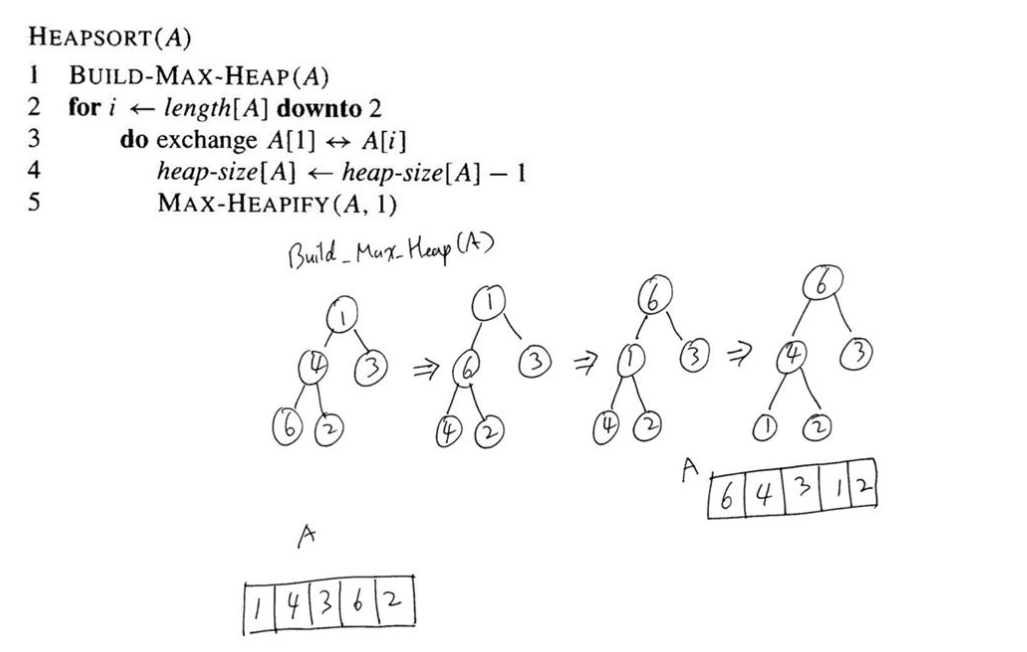 HEAPSORT(A)
1 BUILD-MAX-HEAP(A)
2 for i ← length[A] downto 2
3 do exchange A[1] ↔ A[i]
4 heap-size[A] ← heap-size[A] – 1
5 MAX-HEAPIFY(A, 1)
Build_Max_Heap(A)
1
4 3
6 2
⇒
1
6 3
4 2
⇒
6
1 3
4 2
⇒
6
4 3
1 2
A
6 4 3 1 2
A
1 4 3 6 2